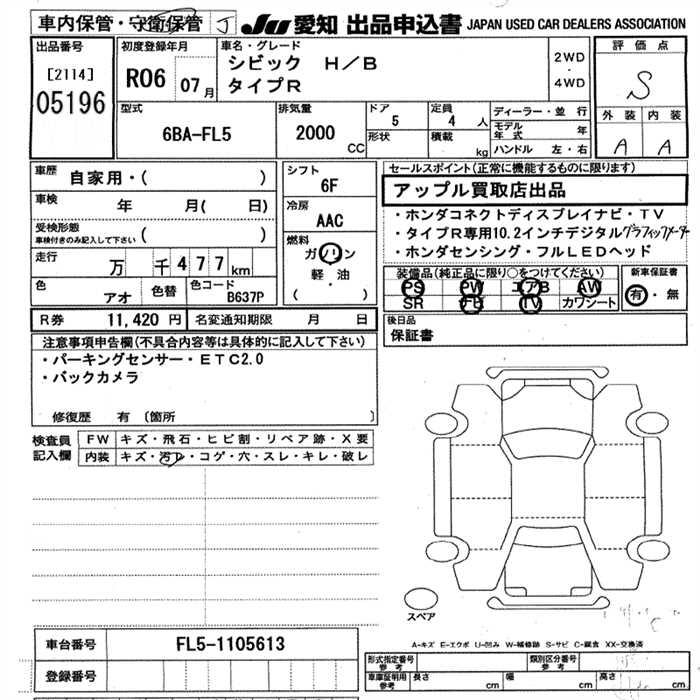 車内保管・守衛保管 J JU 愛知 出品申込書 JAPAN USED CAR DEALERS ASSOCIATION
出品番号
[2114]
05196
初度登録年月
R06 07月
車名・グレード
シビック H/B
タイプR
2WD
・
4WD
評価点
S
外装 内装
A A
型式
6BA-FL5
排気量
2000 CC
ドア
5
形状
定員
4 人
積載
kg
ディーラー・並行
モデル年式 年
ハンドル 左・右
車歴
自家用・( )
車検
年 月( 日)
受検形態
車検付きのみ記入して下さい ( )
走行
万 千477km
色
アオ
色替
色コード
B637P
シフト
6F
冷房
AAC
燃料
ガソリン
軽・油
( )
セールスポイント(正常に機能するものに限ります)
アップル買取店出品
・ホンダコネクトディスプレイナビ・TV
・タイプR専用10.2インチデジタルグラフィックメーター
・ホンダセンシング・フルLEDヘッド
装備品(純正品に限り○をつけてください)
PS PW エアB AW
SR FB TV カワシート
新車保証書
有・無
R券 11,420円 名変通知期限 月 日
後日品
保証書
注意事項申告欄(不具合内容等は具体的に記入して下さい)
・パーキングセンサー・ETC2.0
・バックカメラ
修復歴 有 〔箇所 〕
検査員
記入欄
FW キズ・飛石・ヒビ割・リペア跡・X要
内装 キズ・汚レ・コゲ・穴・スレ・キレ・破レ
スペア
車台番号 FL5-1105613
登録番号
A-キズ E-エクボ U-凹み W-補修跡 S-サビ C-腐食 XX-交換済
形式指定番号
参考
類別区分番号
参考
車庫証明用
参考
長さ cm 幅 cm 高さ cm